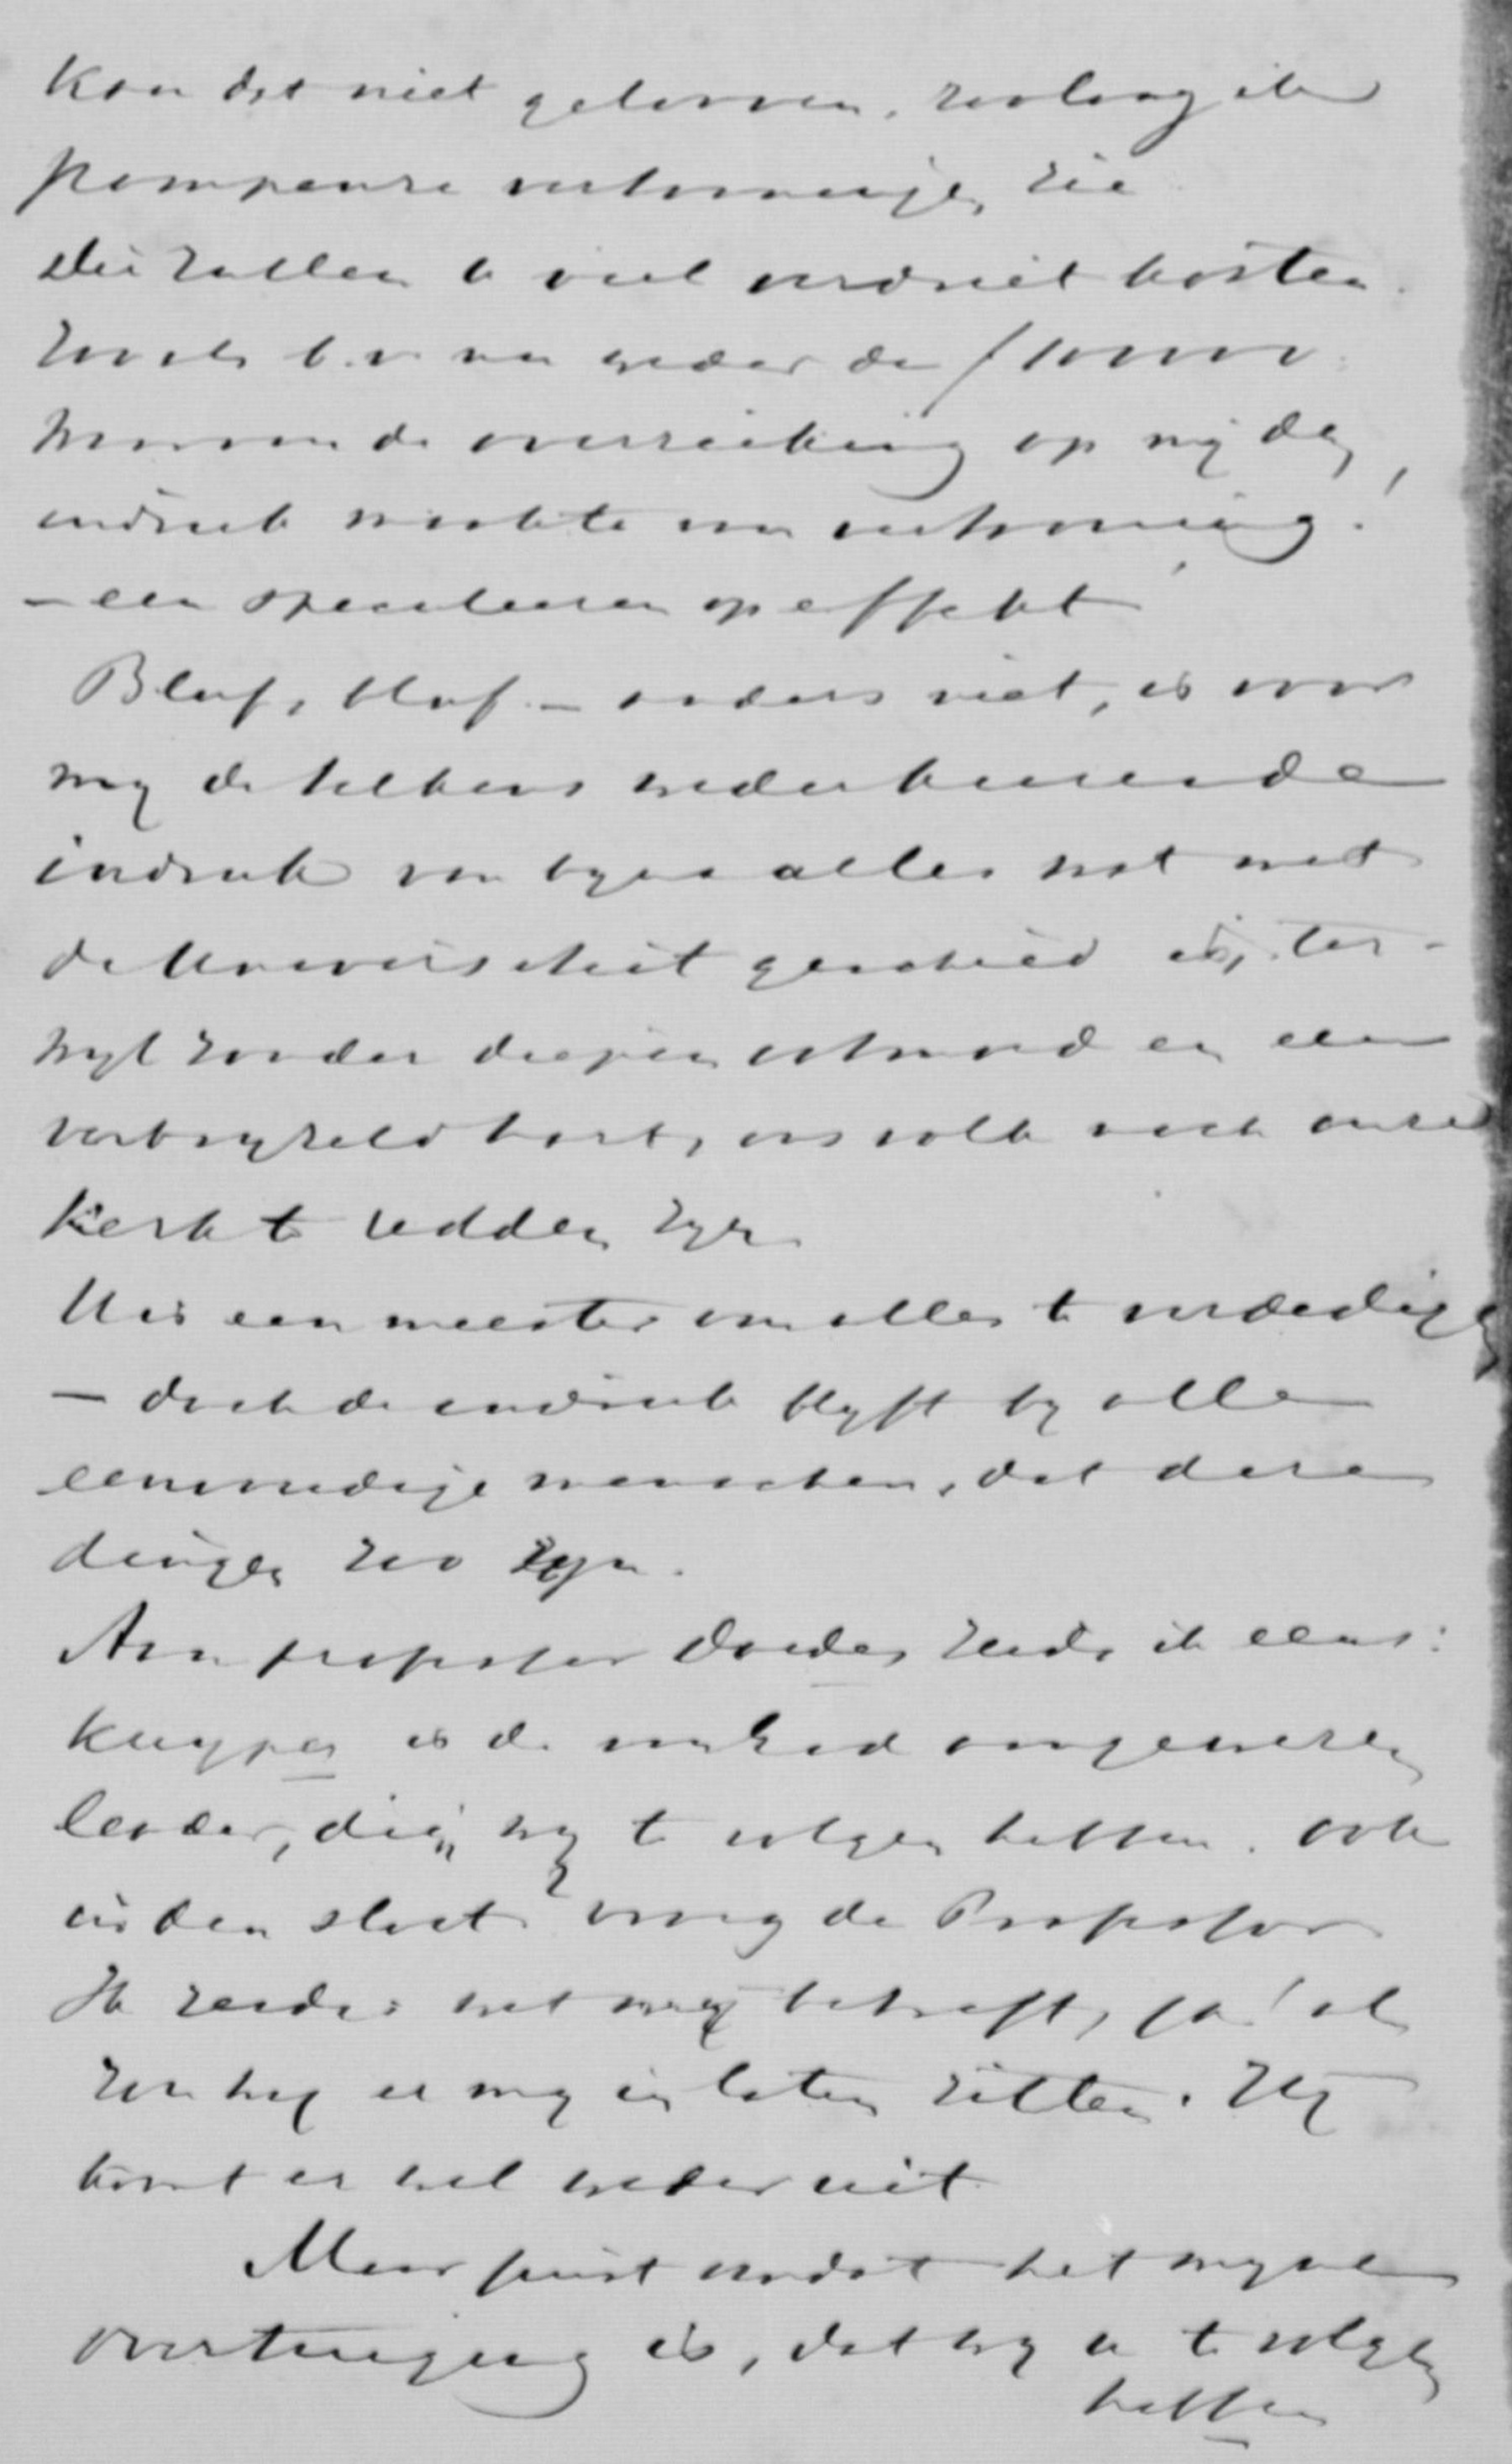 kan dat niet gelooven, zoolang ik
pompeuse vertooningen zie
Die zullen U veel verdriet kosten.
Zooals b.v. nu weder de
de overreiking op mij den
indruk maakte van vertooning!
- een speculeeren op effekt
Bluf, bluf - anders niet, is voor
mij de telkens wederkeerende
indruk van bijna alles wat met
de Universiteit geschied is, ter-
wijl zonder diepen ootmoed en een
verbrijzeld hart, ons volk noch onze
kerk te redden zijn
U is een meester om alles te verdedigen
- doch de indruk blijft bij alle
eenvoudige menschen, dat deze
dingen zoo zijn.
Aan professor Doedes zeide ik eens:
Kuyper is de van God aangewezen
leider, dien wij te volgen hebben. Ook
in den sloot? vroeg de Professor
Ik zeide: wat mij betreft, ja! al
zou hij er mij in laten zitten. Hij
komt er wel weder uit
Maar juist omdat het mijne
overtuiging is, dat wij U te volgen
hebben